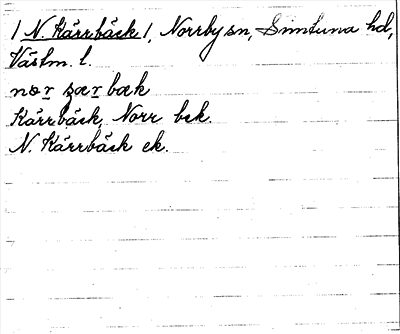 / N. Kärrbäck /, Norrby sn, Simtuna hd,
Västm. l.
nɷr ʂærbæk
Kärrbäck, Norr bek.
N. Kärrbäck ek.